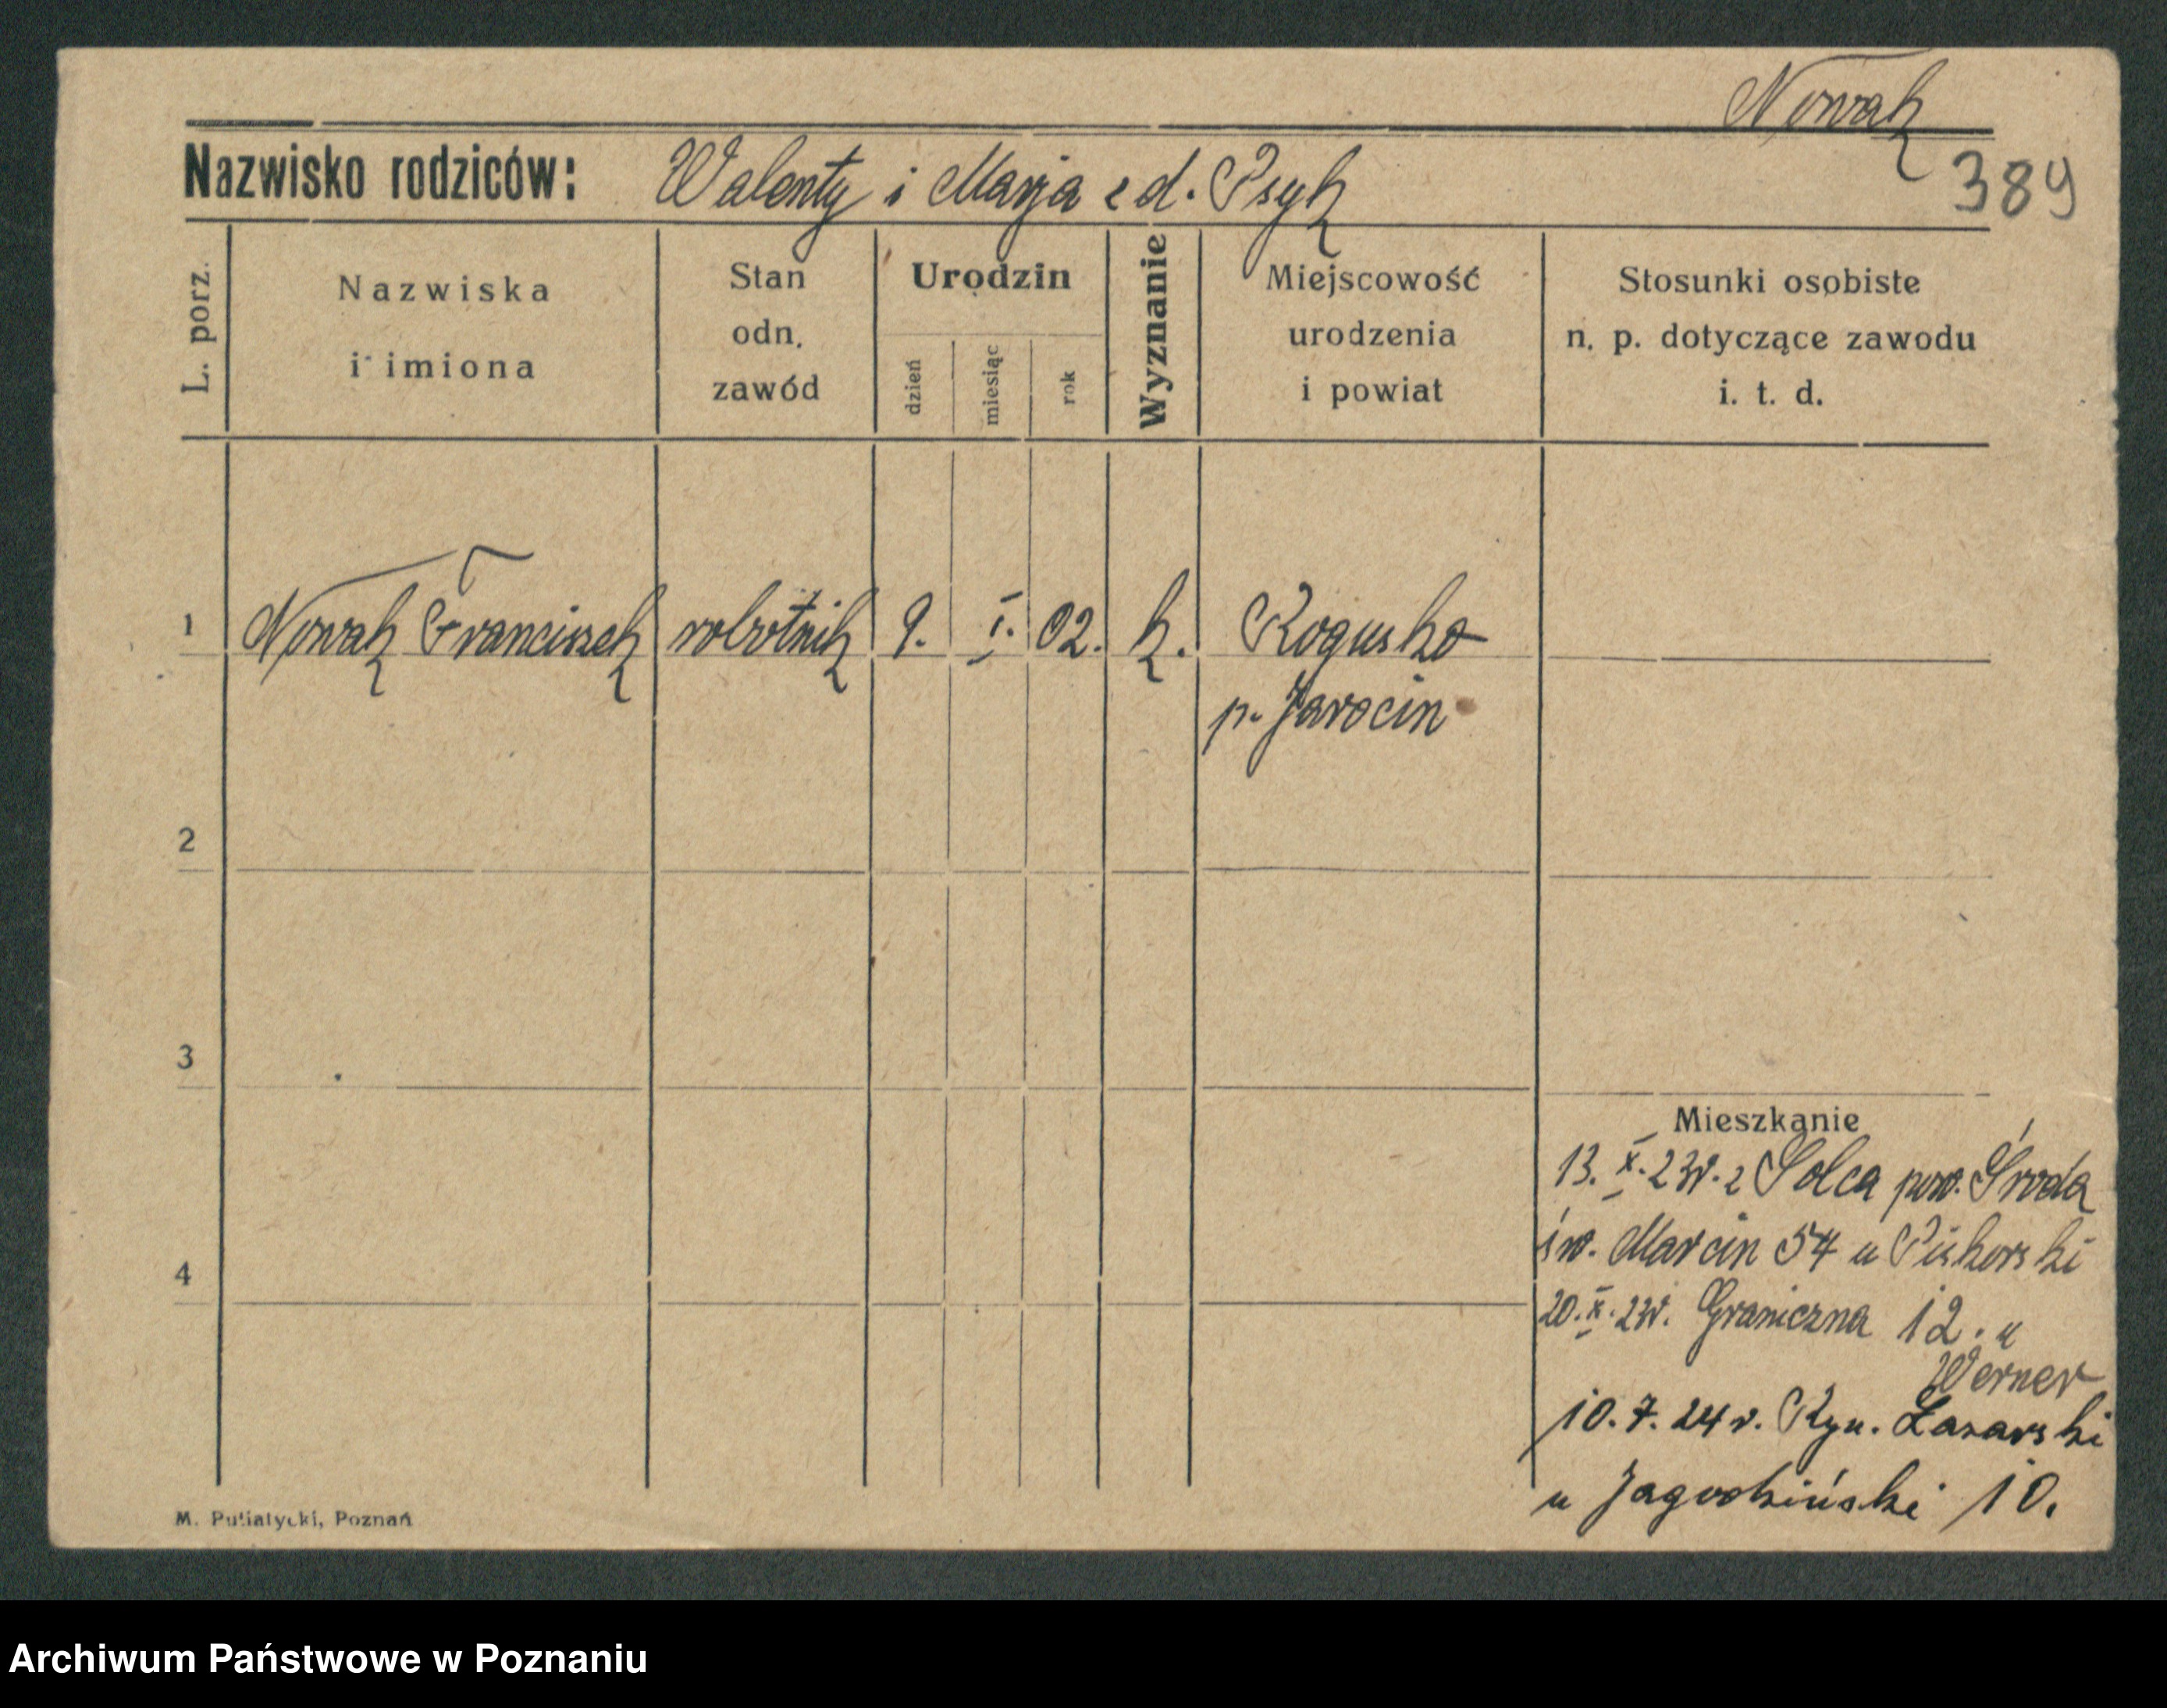 Nowak
Nazwisko rodziców: Walenty i Marja z d. Psyk
389
L. porz.
Nazwiska
i imiona
Stan
odn.
zawód
Urodzin
dzień
miesiąc
rok
Wyznanie
Miejscowość
urodzenia
i powiat
Stosunki osobiste
n. p. dotyczące zawodu
i. t. d.
1 Nowak Franciszek robotnik 9. I. 02. k. Rogusko
p. Jarocin
2
3
Mieszkanie
13. X. 23r. z Solca pow. Środa
św. Marcin 54 u Piskorski
4
20. X. 23r. Graniczna 12. u
Werner
10. 7. 24 r. Ryn. Łazarski
u Jagodziński 10.
M. Putiatycki, Poznań
Archiwum Państwowe w Poznaniu